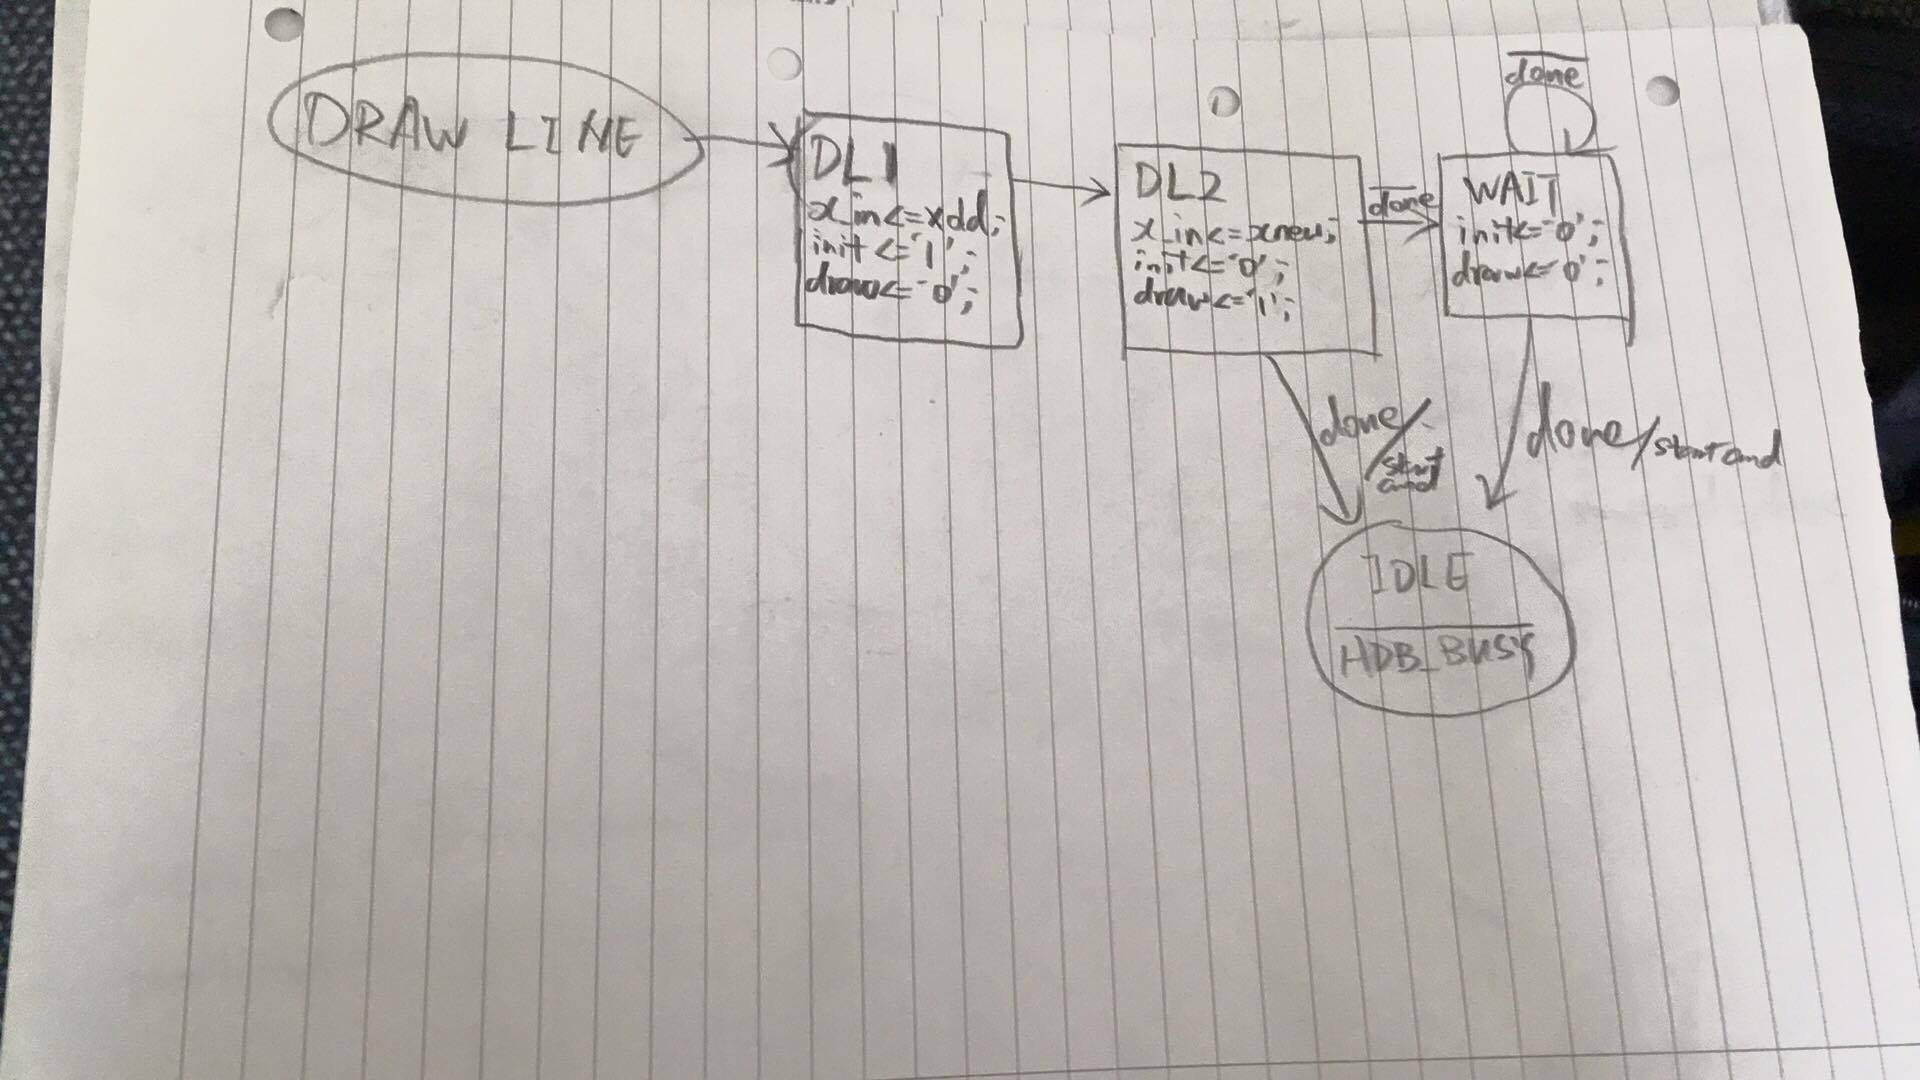 DRAW LINE
DL1
x_in<=xold;
init<='1';
draw<='0';
DL2
x_in<=xnew;
init<='0';
draw<='1';
done
WAIT
init<='0';
draw<='0';
done
done/
done/start
IDLE
HDB_BUSY